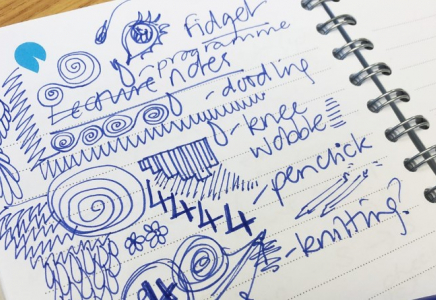 Fidget
programme
Lecture notes
- doodling
- knee
wobble
- pen click
4 4 4 4
- knitting?
4